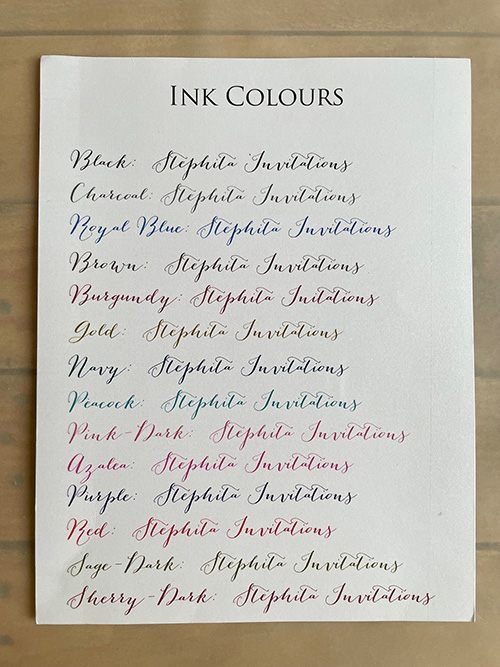 INK COLOURS
Black: Stephita Invitations
Charcoal: Stephita Invitations
Royal Blue: Stephita Invitations
Brown: Stephita Invitations
Burgundy: Stephita Initations
Gold: Stephita Invitations
Navy: Stephita Invitations
Peacock: Stephita Invitations
Pink-Dark: Stephita Invitations
Azalea: Stephita Invitations
Purple: Stephita Invitations
Red: Stephita Invitations
Sage-Dark: Stephita Invitations
Sherry-Dark: Stephita Invitations